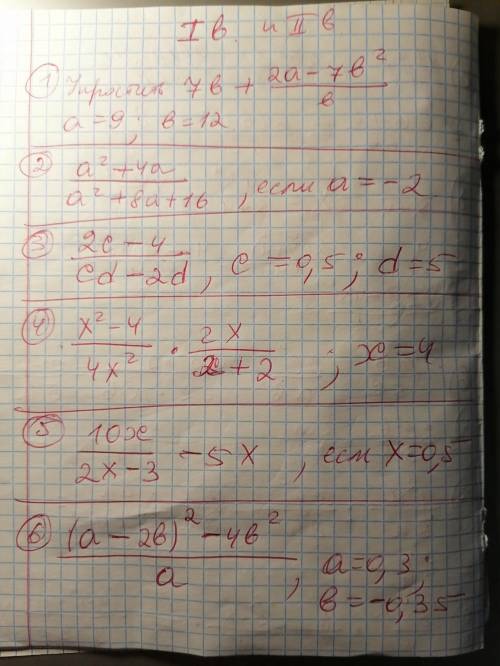 I в. и II в
① Упростить 7в + (2а - 7в²)/в
а = 9; в = 12
② (а² + 4а)/(а² + 8а + 16), если а = -2
③ (2с - 4)/(сd - 2d), с = 0,5; d = 5
④ (x² - 4)/(4x²) · (2x)/(x + 2); x = 4
⑤ (10x)/(2x - 3) - 5x, если x = 0,5
⑥ ((а - 2в)² - 4в²)/а, а = 0,3;
в = -0,35